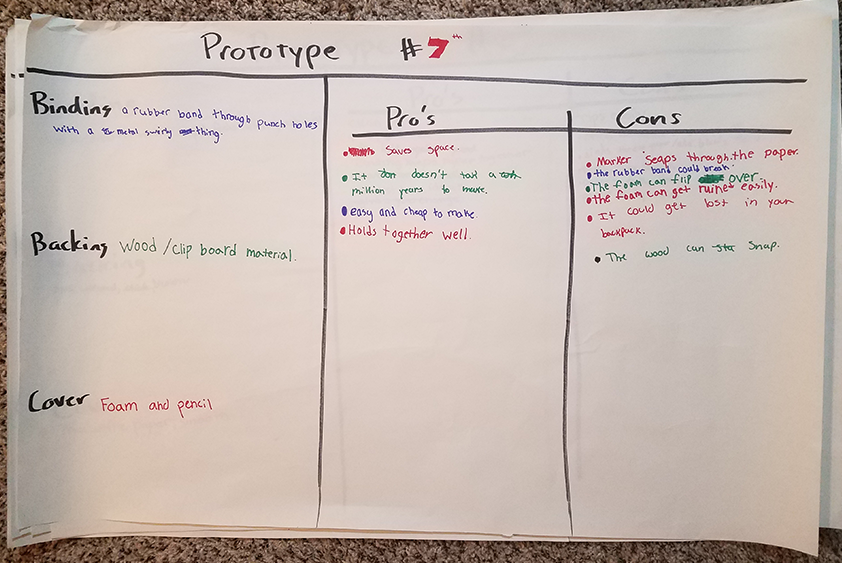 Prototype #7th
Binding a rubber band through punch holes
with a metal swirly thing.
Backing Wood / Clip board material.
Cover Foam and pencil
Pro's
• Saves space.
• It doesn't take a
million years to make.
• easy and cheap to make.
• Holds together well.
Cons
• Marker seaps through the paper.
• the rubber band could break.
• The foam can flip over.
• the foam can get ruined easily.
• It could get lost in your
backpack.
• The wood can snap.